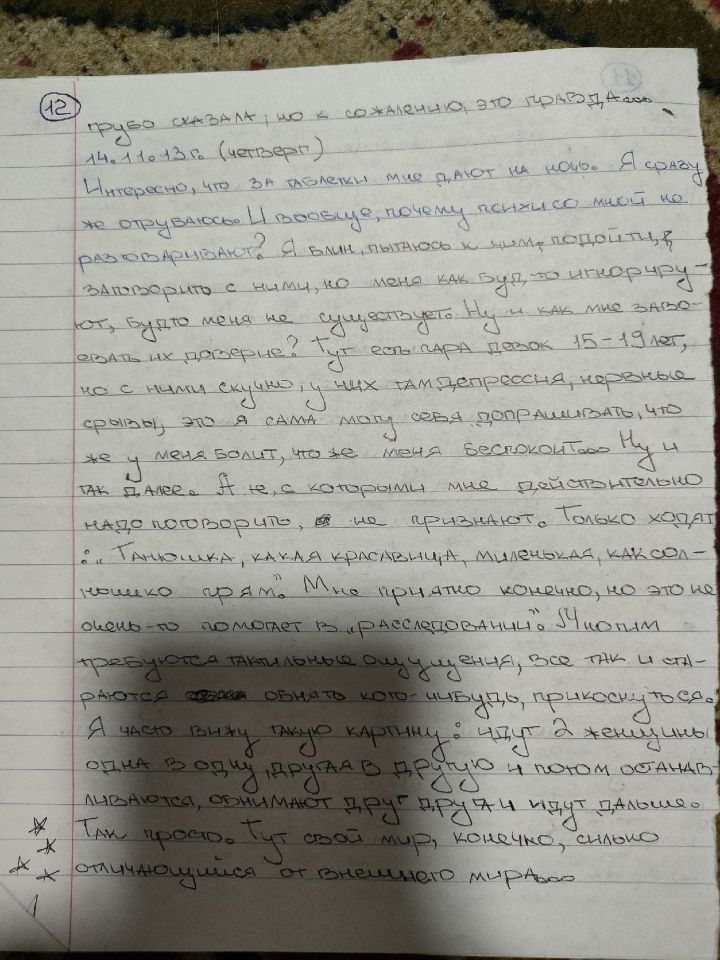 12
грубо сказала, но к сожалению, это правда...
14.11.13г. (четверг)
Интересно, что за таблетки мне дают на ночь. Я сразу
же отрубаюсь. И вообще, почему психи со мной не
разговаривают? Я блин, пытаюсь к ним подойти,
заговорить с ними, но меня как буд-то игнориру-
ют, будто меня не существует. Ну и как мне заво-
евать их доверие? Тут есть пара девок 15-19 лет,
но с ними скучно, у них там депрессия, нервные
срывы, это я сама могу себя допрашивать, что
же у меня болит, что же меня беспокоит... Ну и
так далее. А те, с которыми мне действительно
надо поговорить, не признают. Только ходят
: „Танюшка, какая красавица, миленькая, как сол-
нышко прям". Мне приятно конечно, но это не
очень-то помогает в „расследовании". Многим
требуются тактильные ощущения, все так и ста-
раются обнять кого-нибудь, прикоснуться.
Я часто вижу такую картину: идут 2 женщины
одна в одну, другая в другую и потом останав-
ливаются, обнимают друг друга и идут дальше.
Так просто. Тут свой мир, конечно, сильно
отличающийся от внешнего мира...